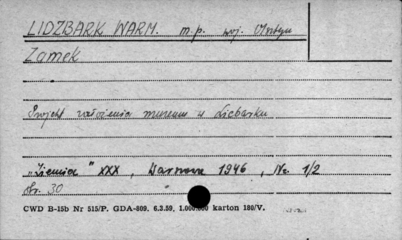 LIDZBARK WARM. m.p. woj. Olsztyn
Zamek
Projekt założenia muzeum w Licbarku
„Ziemia” XXX, Warszawa 1946, Nr. 1/2
str. 30
CWD B-15b Nr 515/P. GDA-809. 6.3.59. 1.000.000 karton 180/V.